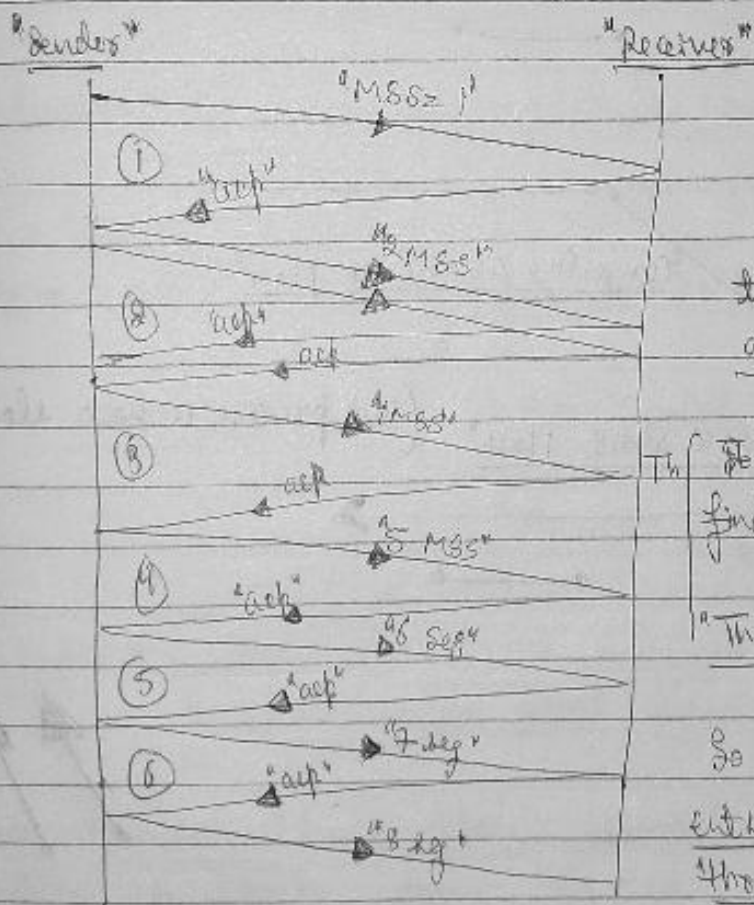 "Sender" "Receiver"
"MSS= 1"
①
"ack"
"2 MSS"
②
"ack"
ack
"4 MSS"
③
ack
Th
"5 MSS"
④
"ack"
"Th
"6 Seg"
⑤
"ack"
"7 seg"
So
⑥
"ack"
"8 sg"